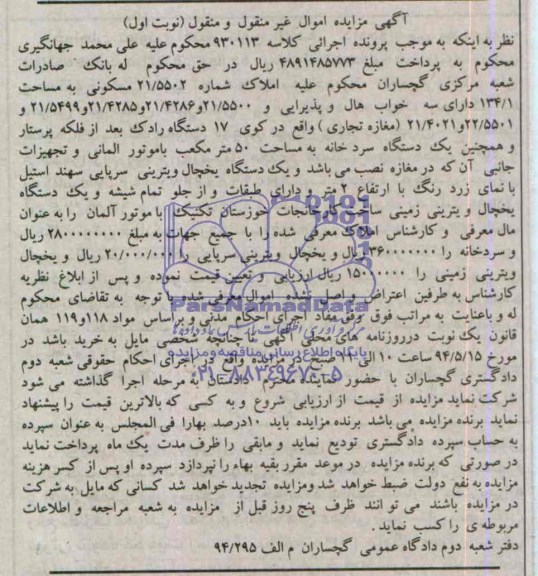 آگهی مزایده اموال غیر منقول و منقول (نوبت اول)
نظر به اینکه به موجب پرونده اجرائی کلاسه ۹۳۰۱۱۳ محکوم علیه علی محمد جهانگیری
محکوم به پرداخت مبلغ ۴۸۹۱۴۸۵۷۷۳ ریال در حق محکوم له بانک صادرات
شعبه مرکزی گچساران محکوم علیه املاک شماره ۲۱/۵۵۰۲ مسکونی به مساحت
۱۳۴/۱ دارای سه خواب هال و پذیرایی و ۲۱/۵۵۰۰و۲۱/۴۲۸۶و۲۱/۴۲۸۵و۲۱/۵۴۹۹ و
۲۲/۵۵۰۱و۲۱/۴۰۲۱ (مغازه تجاری) واقع در کوی ۱۷ دستگاه رادک بعد از فلکه پرستار
و همچنین یک دستگاه سرد خانه به مساحت ۵۰ متر مکعب باموتور المانی و تجهیزات
جانبی آن که در مغازه نصب می باشد و یک دستگاه یخچال ویترینی سرپایی سهند استیل
با نمای زرد رنگ با ارتفاع ۲ متر و دارای طبقات و از جلو تمام شیشه و یک دستگاه
یخچال و یترنی زمینی ساخت کارخانجات خوزستان تکنیک با موتور آلمان را به عنوان
مال معرفی و کارشناس املاک معرفی شده را با جمیع جهات به مبلغ ۲۸۰۰۰۰۰۰۰۰ ریال
و سردخانه را ریال و یخچال ویترینی سرپایی را ۲۰/۰۰۰/۰۰۰ ریال و یخچال
ویترینی زمینی را ریال ارزیابی و تعیین قیمت نموده و پس از ابلاغ نظریه
کارشناس به طرفین اعتراض واصل نشده اموال معرفی شده با توجه به تقاضای محکوم
له و باعنایت به مراتب فوق وفق مفاد اجرای احکام مدنی و براساس مواد ۱۱۸و۱۱۹ همان
قانون یک نوبت درروزنامه های محلی آگهی تا چنانچه شخصی مایل به خرید باشد در
مورخ ۹۴/۵/۱۵ ساعت ۱۰ الی ۱۱ صبح در مزایده واقع در اجرای احکام حقوقی شعبه دوم
دادگستری گچساران با حضور نماینده محترم دادستان به مرحله اجرا گذاشته می شود
شرکت نماید مزایده از قیمت از ارزیابی شروع و به کسی که بالاترین قیمت را پیشنهاد
نماید برنده مزایده می باشد برنده مزایده باید ۱۰درصد بهارا فی المجلس به عنوان سپرده
به حساب سپرده دادگستری تودیع نماید و مابقی را ظرف مدت یک ماه پرداخت نماید
در صورتی که برنده مزایده در موعد مقرر بقیه بهاء را نپردازد سپرده او پس از کسر هزینه
مزایده به نفع دولت ضبط خواهد شد ومزایده تجدید خواهد شد کسانی که مایل به شرکت
در مزایده باشند می توانند ظرف پنج روز قبل از مزایده به شعبه مراجعه و اطلاعات
مربوطه ی را کسب نماید .
دفتر شعبه دوم دادگاه عمومی گچساران م الف ۹۴/۲۹۵
ParsNamadData
پایگاه اطلاع رسانی مناقصه و مزایده
۰۲۱-۸۸۳۴۹۶۷۰-۵